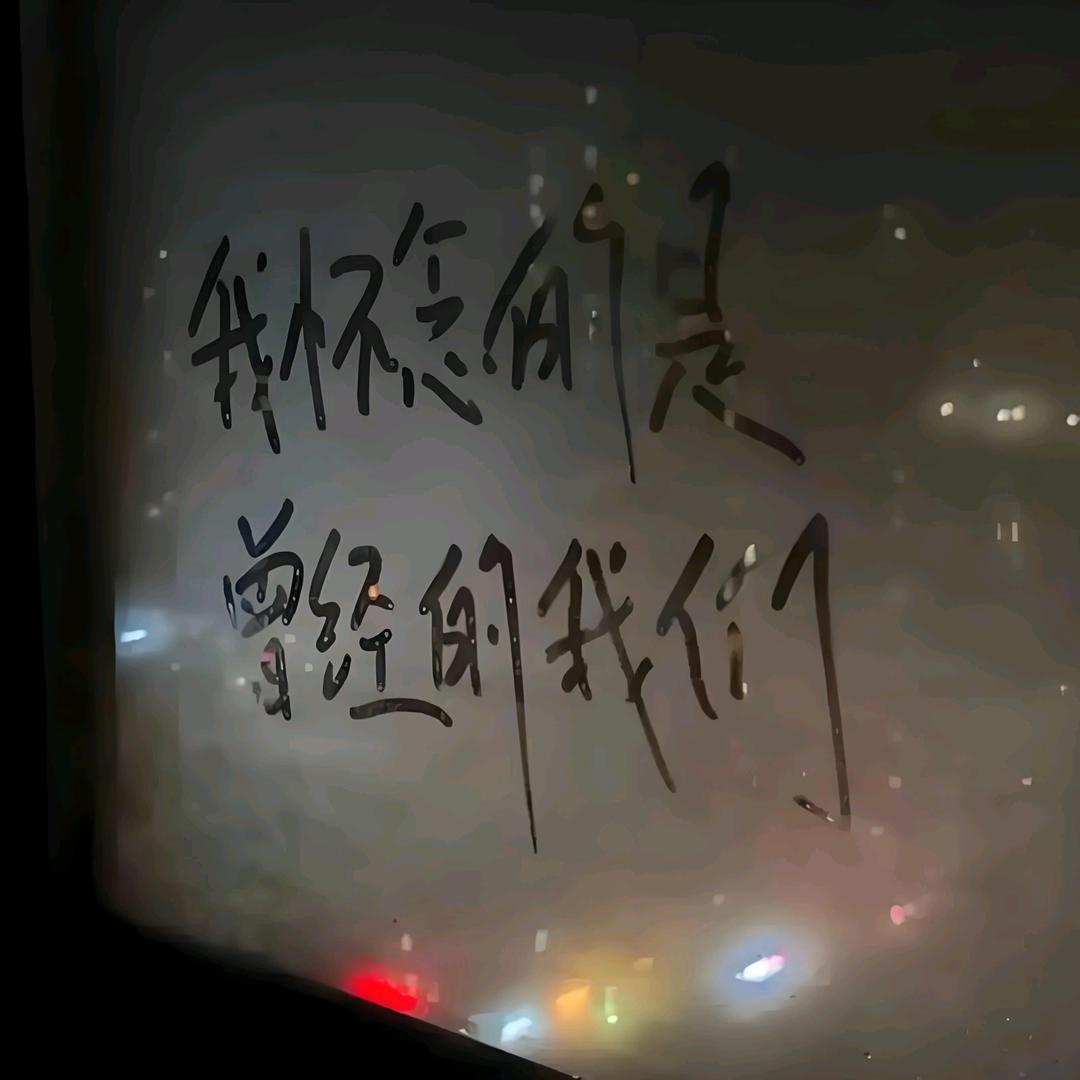 我怀念的是
曾经的我们